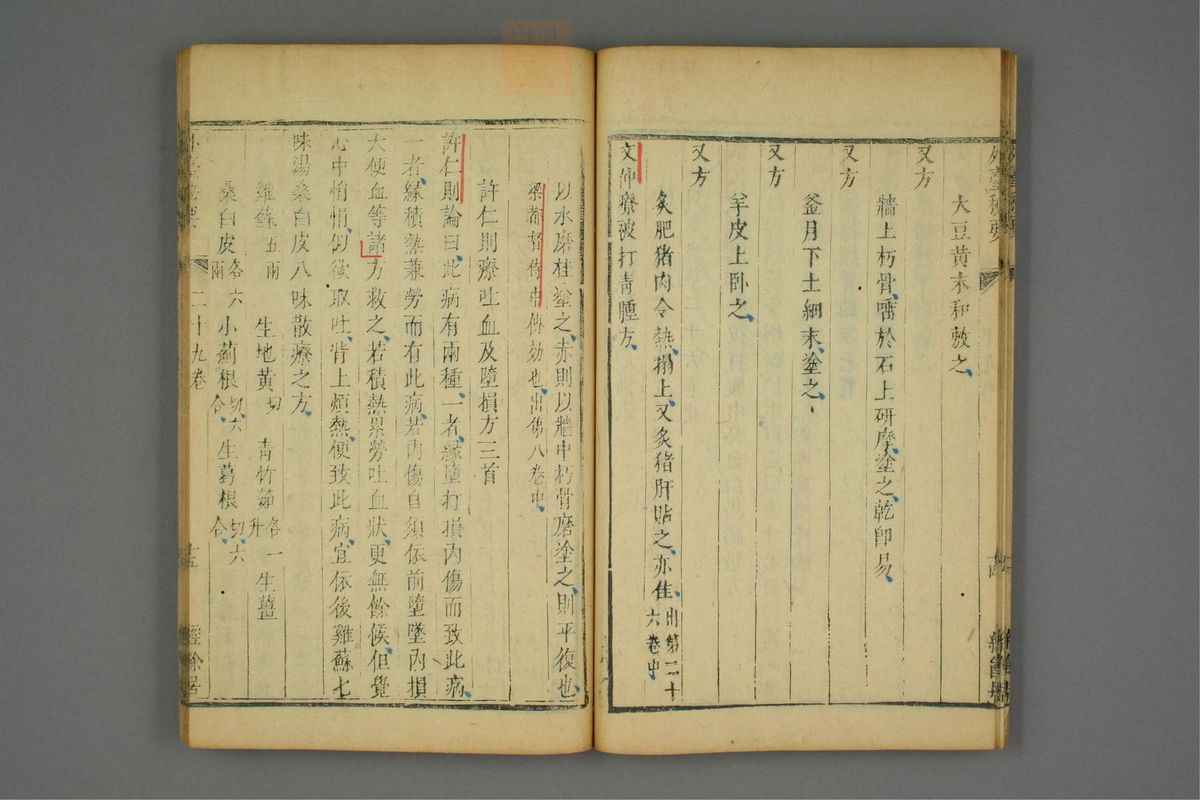 大豆黃末和敷之
又方
牆上朽骨嚼於石上研摩塗之乾卽易
又方
釜月下土細末塗之
又方
羊皮上卧之
又方
炙肥猪肉令熱搨上又炙猪肝貼之亦佳出第二十六卷中
文仲療被打青腫方
以水磨桂塗之赤則以牆中朽骨磨塗之則平復也
梁都督侍中傳効也出第八卷中
許仁則療吐血及墮損方三首
許仁則論曰此病有兩種一者緣墮打損內傷而致此病
一者緣積熱兼勞而有此病若內傷自須依前墮墜內損
大便血等諸方救之若積熱累勞吐血狀更無餘候但覺
心中悁悁似欲取吐背上煩熱便致此病宜依後雞蘇七
味湯桑白皮八味散療之方
雞蘇五兩 生地黃切 青竹茹各一升 生薑
桑白皮各六兩 小薊根切六合 生葛根切六合
二十九卷
十五
經餘居